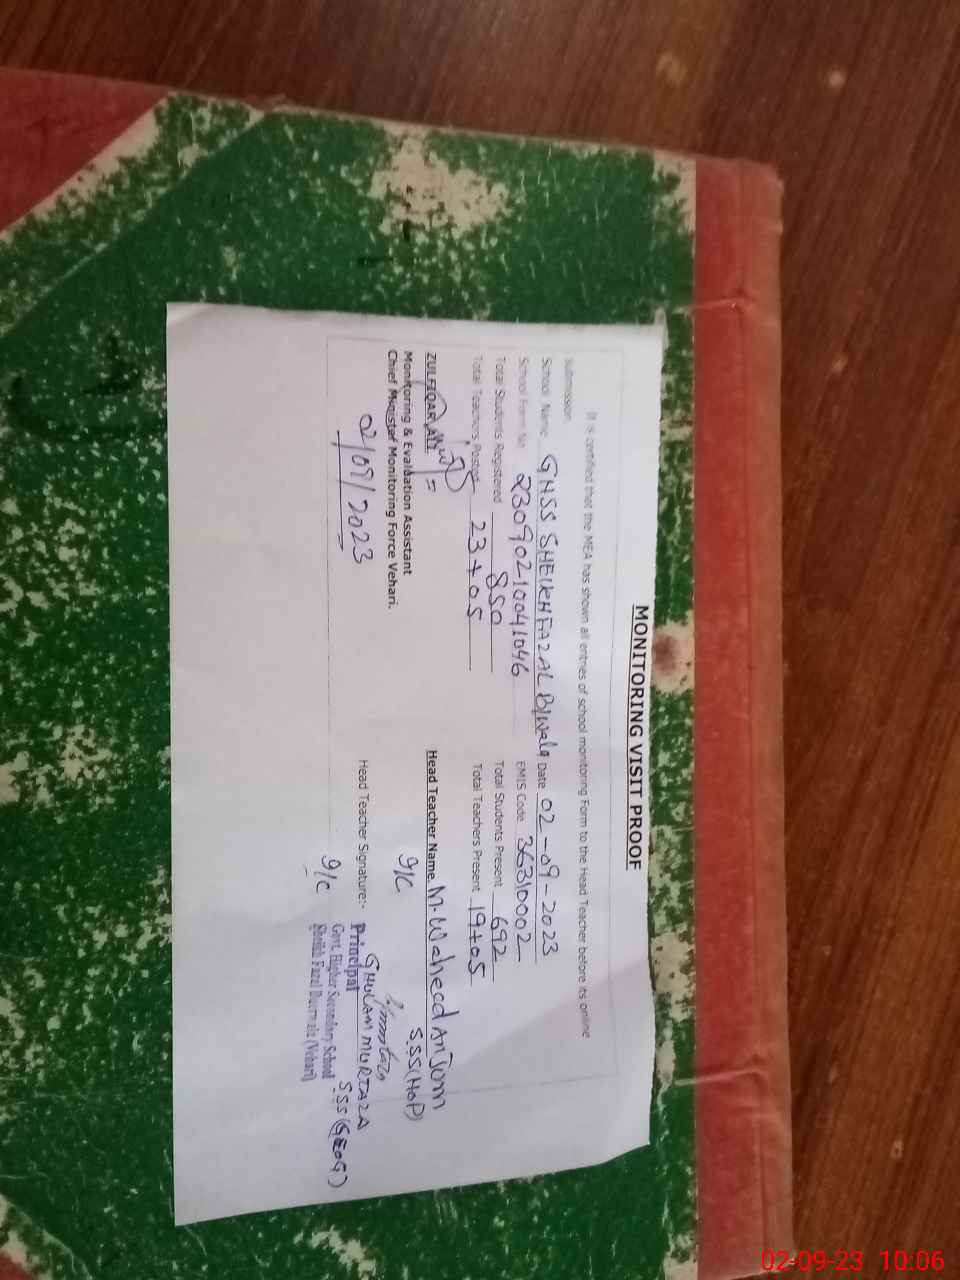 MONITORING VISIT PROOF
It is certified that the MEA has shown all entries of school monitoring Form to the Head Teacher before its online
submission
School Name GHSS SHEIKH FAZAL B/Wala Date 02-09-2023
School Form No 23090210041046 EMIS Code 36310002
Total Students Registered 850 Total Students Present 692
Total Teachers Posted 23+05 Total Teachers Present 19+05
ZULFIQAR ALI
Monitoring & Evaluation Assistant
Chief Minister Monitoring Force Vehari.
02/09/2023
Head Teacher Name. M. Waheed Anjum
I/C S.S.S (HoP)
Head Teacher Signature:-
GHULAM MURTAZA
I/C S.S.S (GEOG)
Principal
Govt. Higher Secondary School
Sheikh Fazal Burewala (Vehari)
02-09-23 10:06